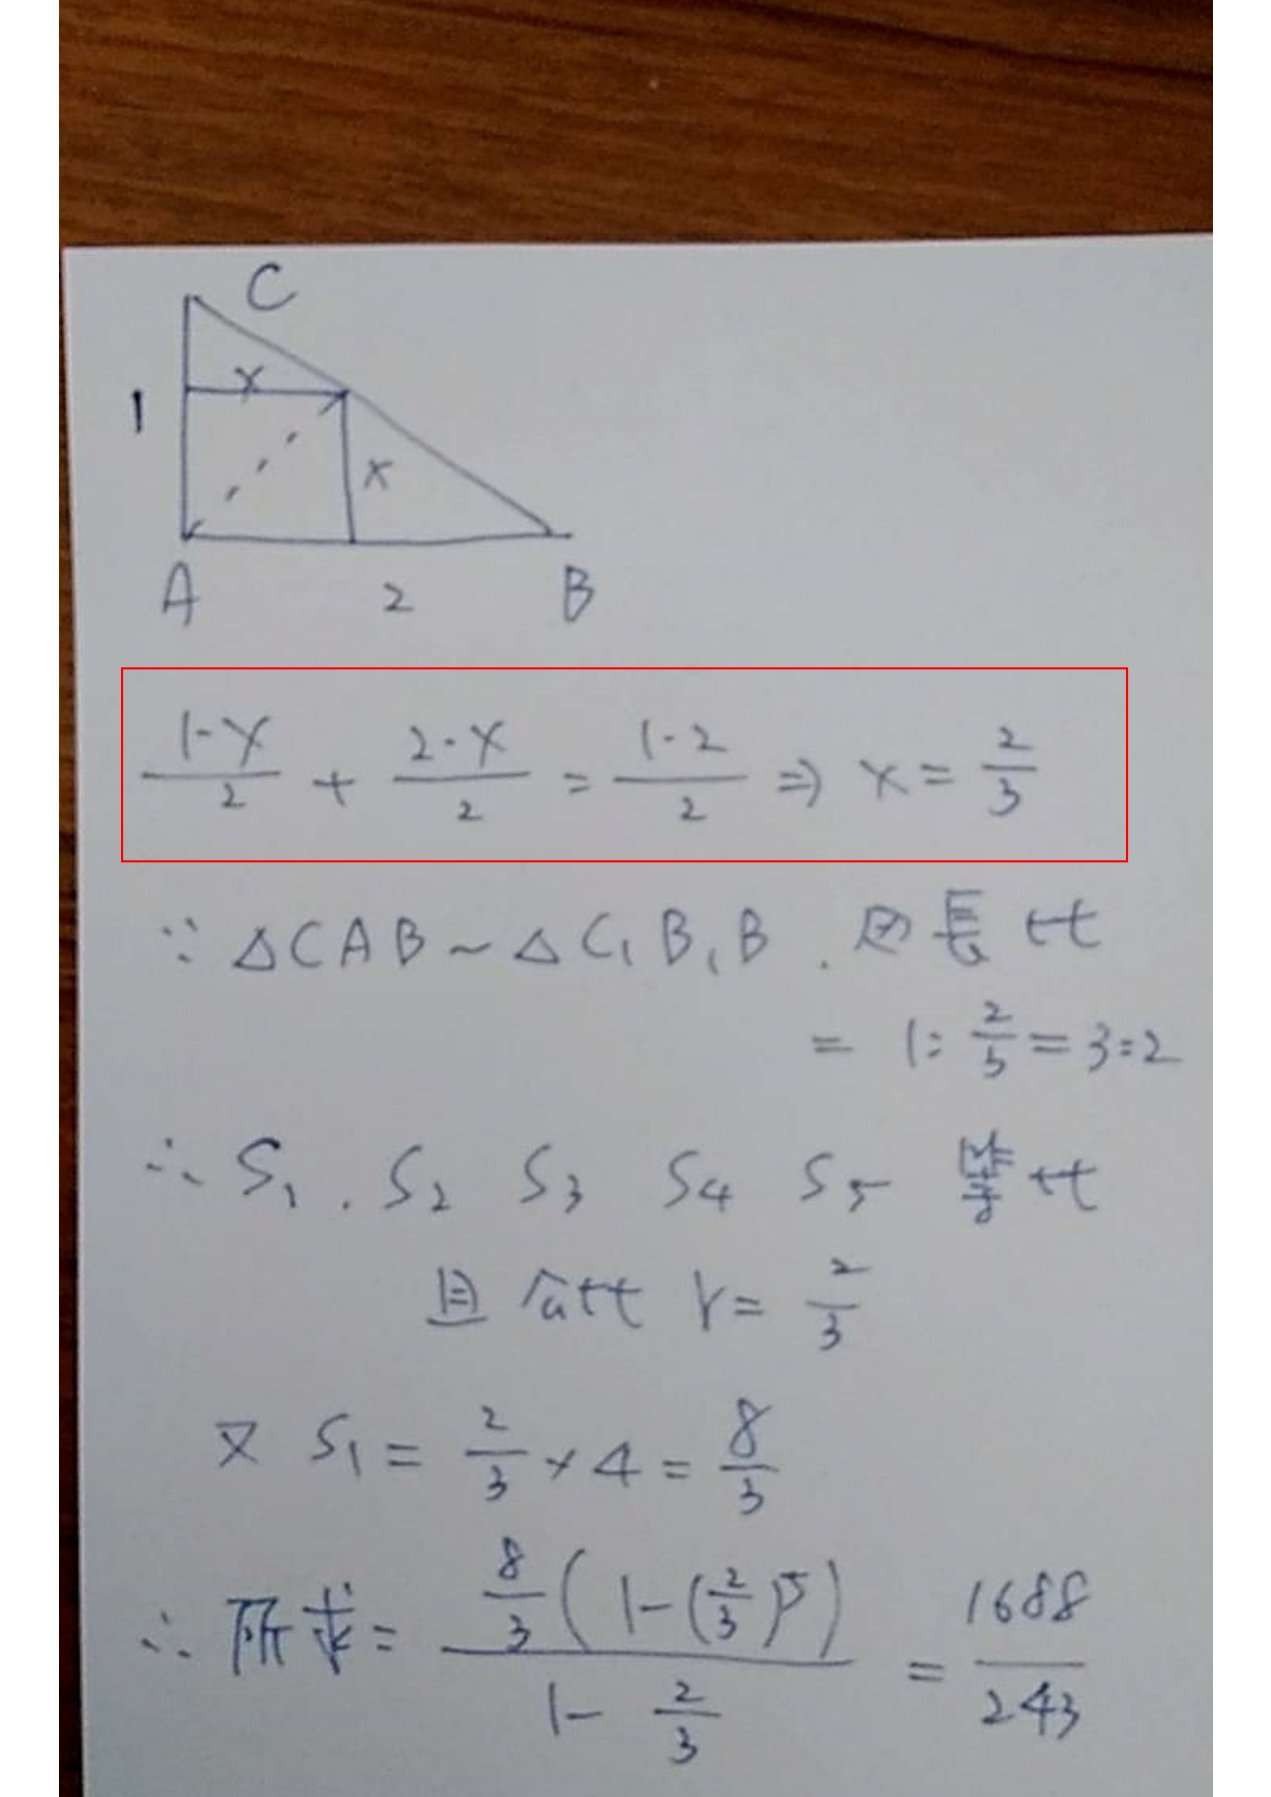 C
x
1
x
A 2 B
\frac{1 \cdot x}{2} + \frac{2 \cdot x}{2} = \frac{1 \cdot 2}{2} ⇒ x = \frac{2}{3}
∵ △CAB ~ △C₁B₁B . 边長比
= 1 : \frac{2}{3} = 3 : 2
∴ S₁ . S₂ S₃ S₄ S₅ 等比
且公比 r = \frac{2}{3}
又 S₁ = \frac{2}{3} × 4 = \frac{8}{3}
∴ 所求 = \frac{\frac{8}{3}(1-(\frac{2}{3})^5)}{1-\frac{2}{3}} = \frac{1688}{243}